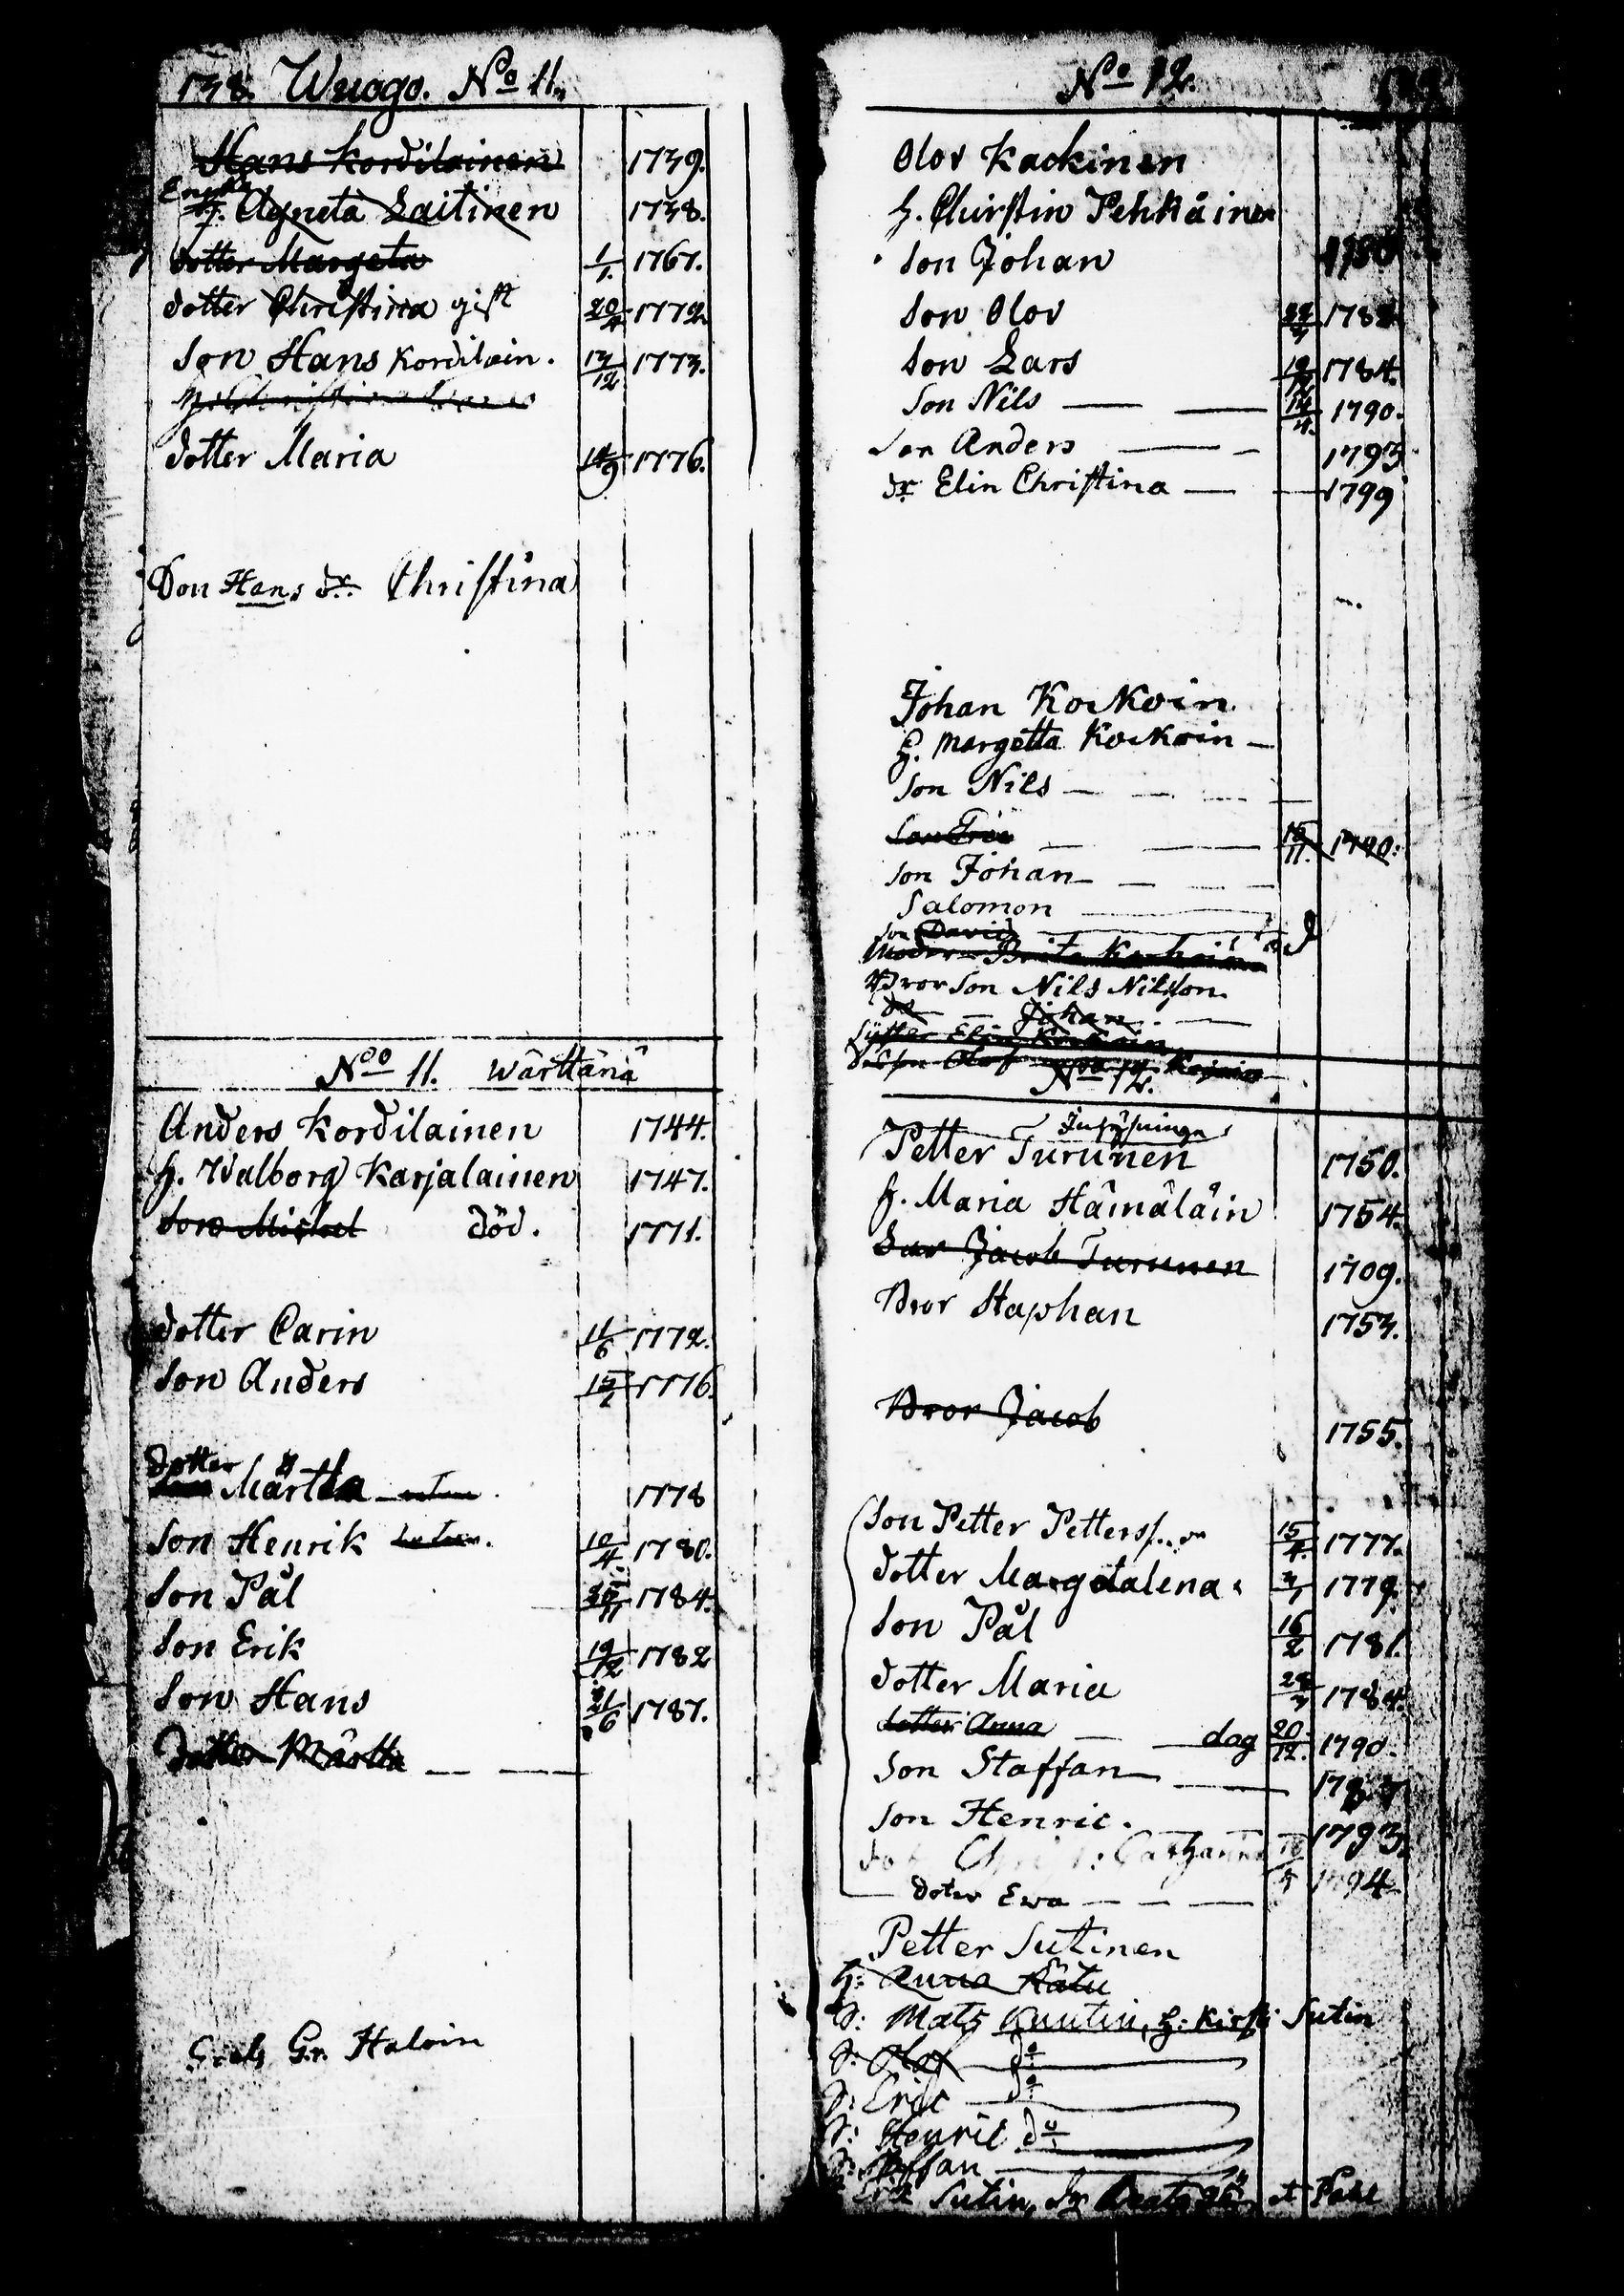 138. Wuogo. No 11.
Hans Kordilainen 1739.
Enka
H. Agneta Laitinen 1738.
dotter Margeta 1/1. 1767.
dotter Christina gift 20/4 1772.
Son Hans Kordilain. 13/12 1773.
dotter Maria 14/9 1776.
Son Hans dr. Christina
No 11. wärttänä
Anders Kordilainen 1744.
h. Walborg Karjalainen 1747.
Son Michel död. 1771.
dotter Carin 11/6 1772.
Son Anders 1776.
dotter
Märtha 1778
Son Henrik 10/4. 1780.
Son Pål 1784.
Son Erik 19/12 1782
Son Hans 21/6 1787.
dotter Märtta
Gr. Haloin
No 12.
Olov Kackinen
h. Christin Pehkäinen
Son Johan 1780
Son Olov 178
Son Lars 1784.
Son Nils 14/4. 1790.
Son Anders 1793
dr Elin Christina 1799
Johan Kockoin
h. Margetta Kockoin
Son Nils
Son Eric 19/11. 1790.
Son Johan
Salomon
Son David
Modren Brita
Bror Son Nils Nilsson.
do Johan
Syster Elin Kockoin
No 14.
Inhysninge
Petter Turunen 1750.
h. Maria Hämäläin 1754.
Far Jacob Turunen 1709.
Bror Staphan 1753.
Bror Jacob 1755.
Son Petter Petterss. 15/4. 1777.
dotter Magdalena 1779.
Son Pål 16/2 1781.
dotter Maria 1784.
dotter Anna dog 20/12. 1790.
Son Staffan
Son Henric. 1793.
Catharina
doter Ewa 1794
Petter Sutinen
h: Anna Rätu
S: Mats h: Kirsti Sutin
S: Olof do
S: Eric do
S: Henric do
S: Staffan
Sutin